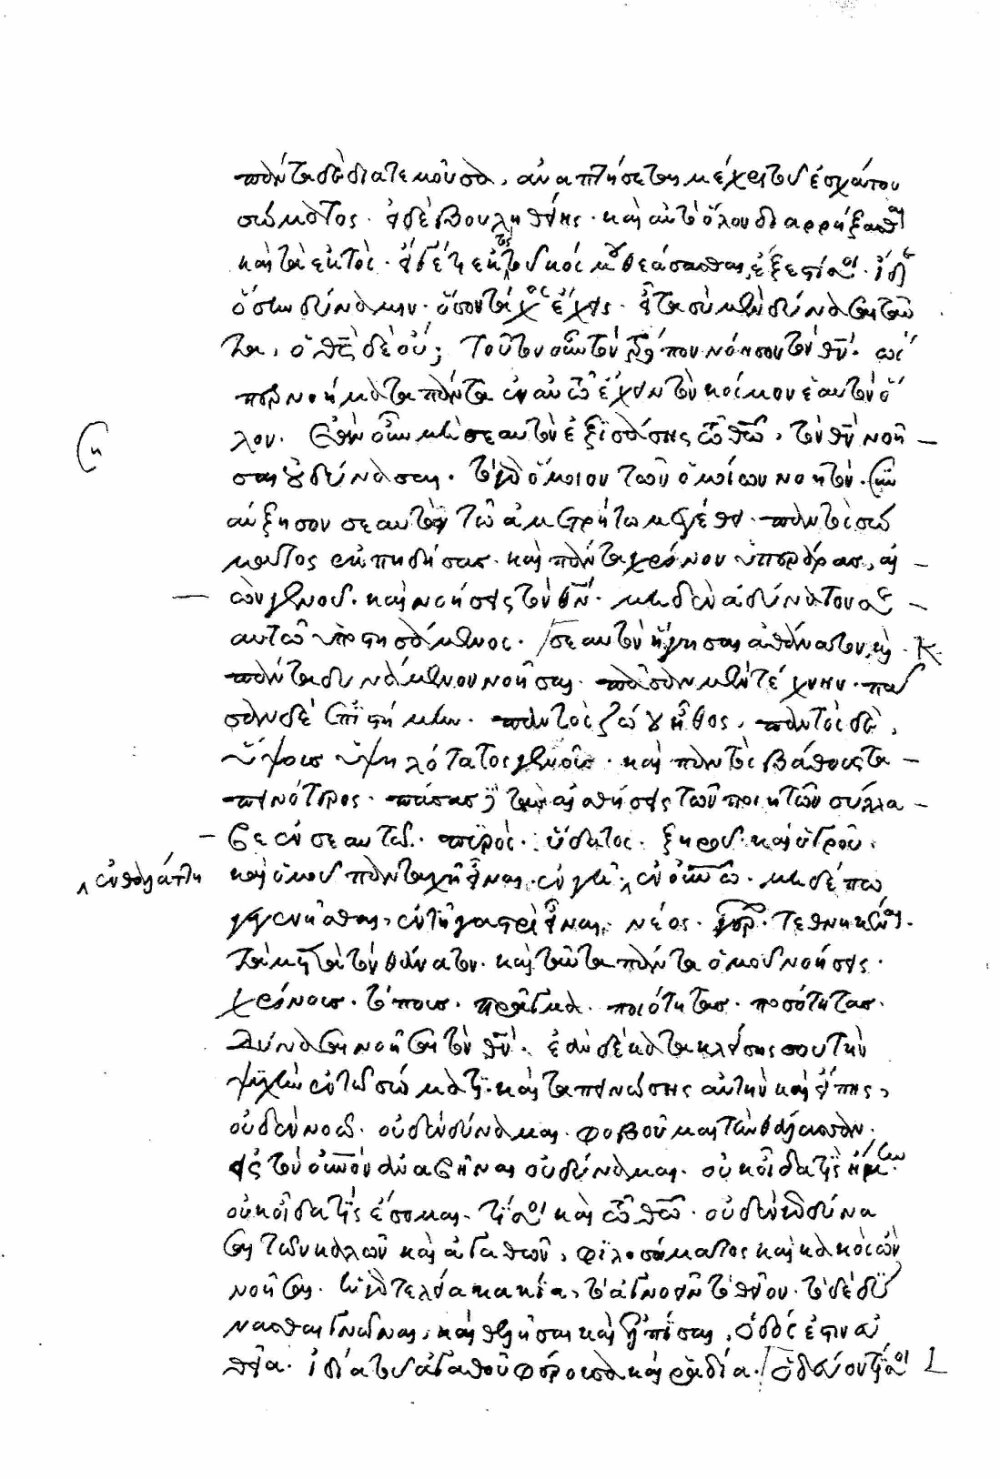 πάντα δὲ διατεμοῦσα, ἀναπτήσεται μέχρι τοῦ ἐσχάτου
σώματος. εἰ δὲ βουληθείης. καὶ αὐτὸ ὅλον διαρρήξασθαι
καὶ τὰ ἐκτὸς. εἰ δέ τι ἐκτὸς τοῦ κόσμου θεάσασθαι, ἔξεστί σοι. ἴδε
ὅσην δύναμιν. ὅσον τάχος ἔχεις. εἶτα σὺ μὲν δύνασαι ταῦ
τα, ὁ θς δὲ οὔ; τοῦτον οὖν τὸν τρόπον νόησον τὸν θν. ὥσ
περ νοήματα πάντα ἐν αὐτῶ ἔχειν τὸν κόσμον ἑαυτὸν ὅ
λον. ἐὰν οὖν μὴ σεαυτὸν ἐξισάσης τῶ θῶ, τὸν θν νοῆ
σαι οὐ δύνασαι. τὸ γὰρ ὅμοιον τῶν ὁμοίων νοητόν. συν
αύξησον σεαυτὸν τῶ ἀμετρήτω μεγέθει. παντὸς σώ
ματος ἐκπηδήσας. καὶ πάντα χρόνον ὑπεράρας, αἰ
ὼν γενοῦ. καὶ νοήσεις τὸν θν. μηδὲν ἀδύνατον σε
αυτῶ ὑποστησάμενος. σεαυτὸν ἥγησαι ἀθάνατον, καὶ K
πάντα δυνάμενον νοῆσαι. πᾶσαν μὲν τέχνην. πᾶ
σαν δὲ ἐπιστήμην. παντὸς ζώου ἦθος. παντὸς δὲ,
ὕψους ὑψηλότατος γενοῦ. καὶ παντὸς βάθους τα
πεινότερος. πάσας τὰς αἰσθήσεις τῶν ποιητῶν σύλλα
βε ἐν σεαυτῶ. πυρὸς. ὕδατος. ξηροῦ. καὶ ὑγροῦ.
ἐν θαλάττη καὶ ὁμοῦ πανταχῆ εἶναι. ἐν γῆ. ἐν οὐνῶ. μηδέπω
γεγενῆσθαι, ἐν τῆ γαστρὶ εἶναι, νέος. γέρων. τεθνηκέναι.
τὰ μετὰ τὸν θάνατον. καὶ ταῦτα πάντα ὁμοῦ νοήσεις.
χρόνους. τόπους. πράγματα. ποιότητας. ποσότητας.
δύνασαι νοῆσαι τὸν θν. ἐὰν δὲ κατακλείσης σου τὴν
ψυχὴν ἐν τῶ σώματι. καὶ ταπεινώσης αὐτὴν καὶ εἴπης,
οὐδὲν νοῶ. οὐδὲν δύναμαι. φοβοῦμαι τὴν θάλασσαν.
εἰς τὸν οὐνὸν ἀναβῆναι οὐ δύναμαι. οὐκ οἶδα τίς ἤμην.
οὐκ οἶδα τίς ἔσομαι. τί σοι καὶ τῶ θῶ. οὐδὲν γὰρ δύνα
σαι τῶν καλῶν καὶ ἀγαθῶν, φιλοσώματος καὶ κακὸς ὢν
νοῆσαι. ἡ γὰρ τελεία κακία, τὸ ἀγνοεῖν τὸ θεῖον. τὸ δὲ δύ
νασθαι γνῶναι, καὶ θελῆσαι καὶ ἐλπίσαι, ὁδός ἐστιν εὐ
θεῖα. ἰδία τοῦ ἀγαθοῦ φέρουσα καὶ ῥαδία. ὁδεύοντί σοι